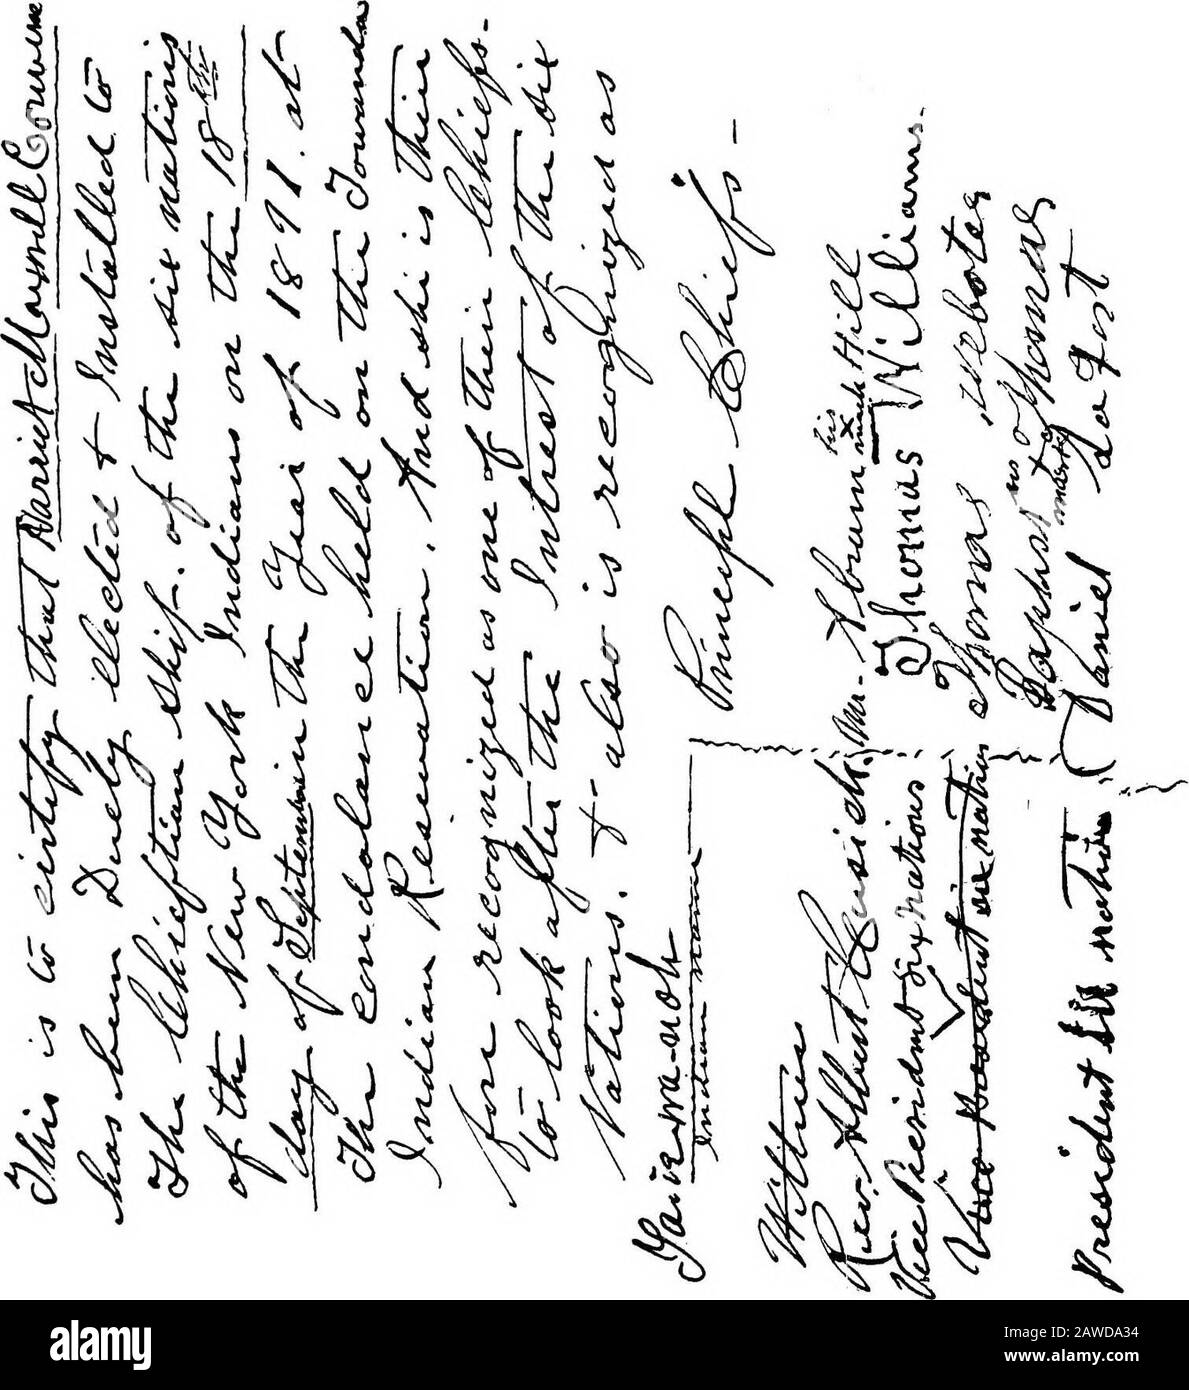 This is to certify that Harriet Maxwell Converse
has been Duely elected & Installed to
The Chieftian ship. of the six nations
of the New York Indians on the 18th
day of September in the Year of 1891. at
The Condolance held on the Tonawanda
Indian Reservation. And she is then
fore recognized as one of their Chiefs-
to look after the Intrest of the six
Nations. & also is recognized as
Gaiiewanoh
Indian name
Princeple Chiefs -
Witness
Rev. Albert Cusick. Wm. Abram his x mark Hill
Vice President Six nations Thomas Williams.
Vice President six nation Thomas webster
Baptist his mark Thomas
President Six nations Daniel La Fort
alamy
Image ID: 2AWDA34
www.alamy.com